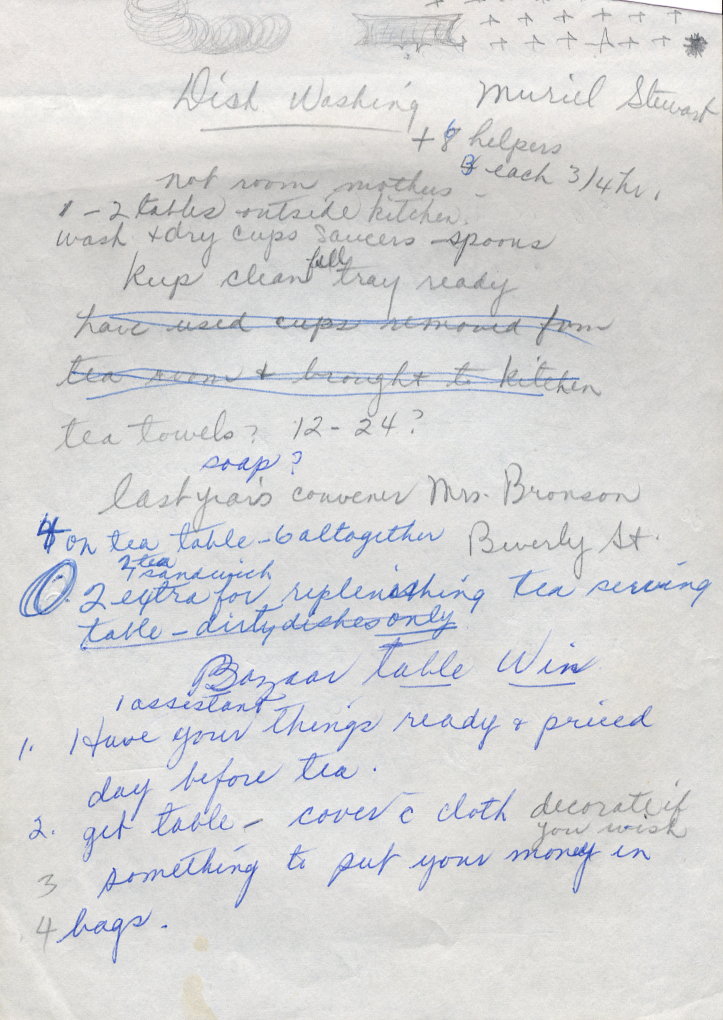 Dish Washing Muriel Stewart
+ 8 helpers
3 each 3/4 hr.
not room mothers -
1 - 2 tables outside kitchen.
wash & dry cups saucers - spoons
fully
keep clean tray ready
have used cups removed from
tea room & brought to kitchen
tea towels? 12 - 24?
soap?
last year's convener Mrs. Bronson
4 on tea table - 6 altogether Beverly St.
2 tea
4 sandwich
2 extra for replenishing tea serving
table - dirty dishes only
Bazaar table Win
1 assistant
1. Have your things ready & priced
day before tea.
2. get table - cover c̄ cloth decorate if
you wish
3 something to put your money in
4 bags.